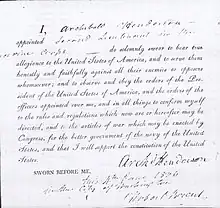 I, Archibald Henderson
appointed Second Lieutenant in the
Marine Corps do solemnly swear to bear true
allegiance to the United States of America, and to serve them
honestly and faithfully against all their enemies or opposers
whomsoever; and to observe and obey the orders of the Pres-
ident of the United States of America, and the orders of the
officers appointed over me, and in all things to conform myself
to the rules and regulations which now are or hereafter may be
directed, and to the articles of war which may be enacted by
Congress, for the better government of the navy of the United
States, and that I will support the constitution of the United
States.
Arch Henderson
SWORN BEFORE ME,
this June 1806
in the City of Washington
Robert Brent